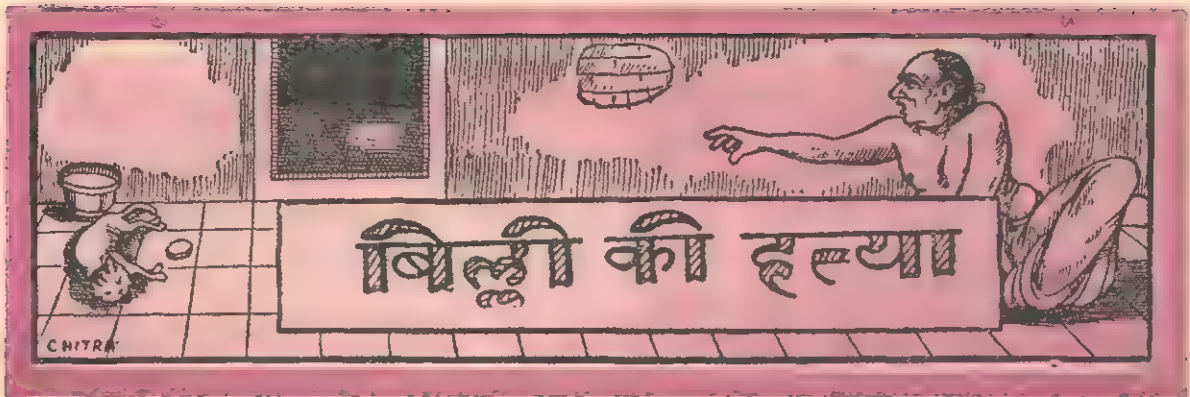 बिल्ली की हत्या
CHITRA